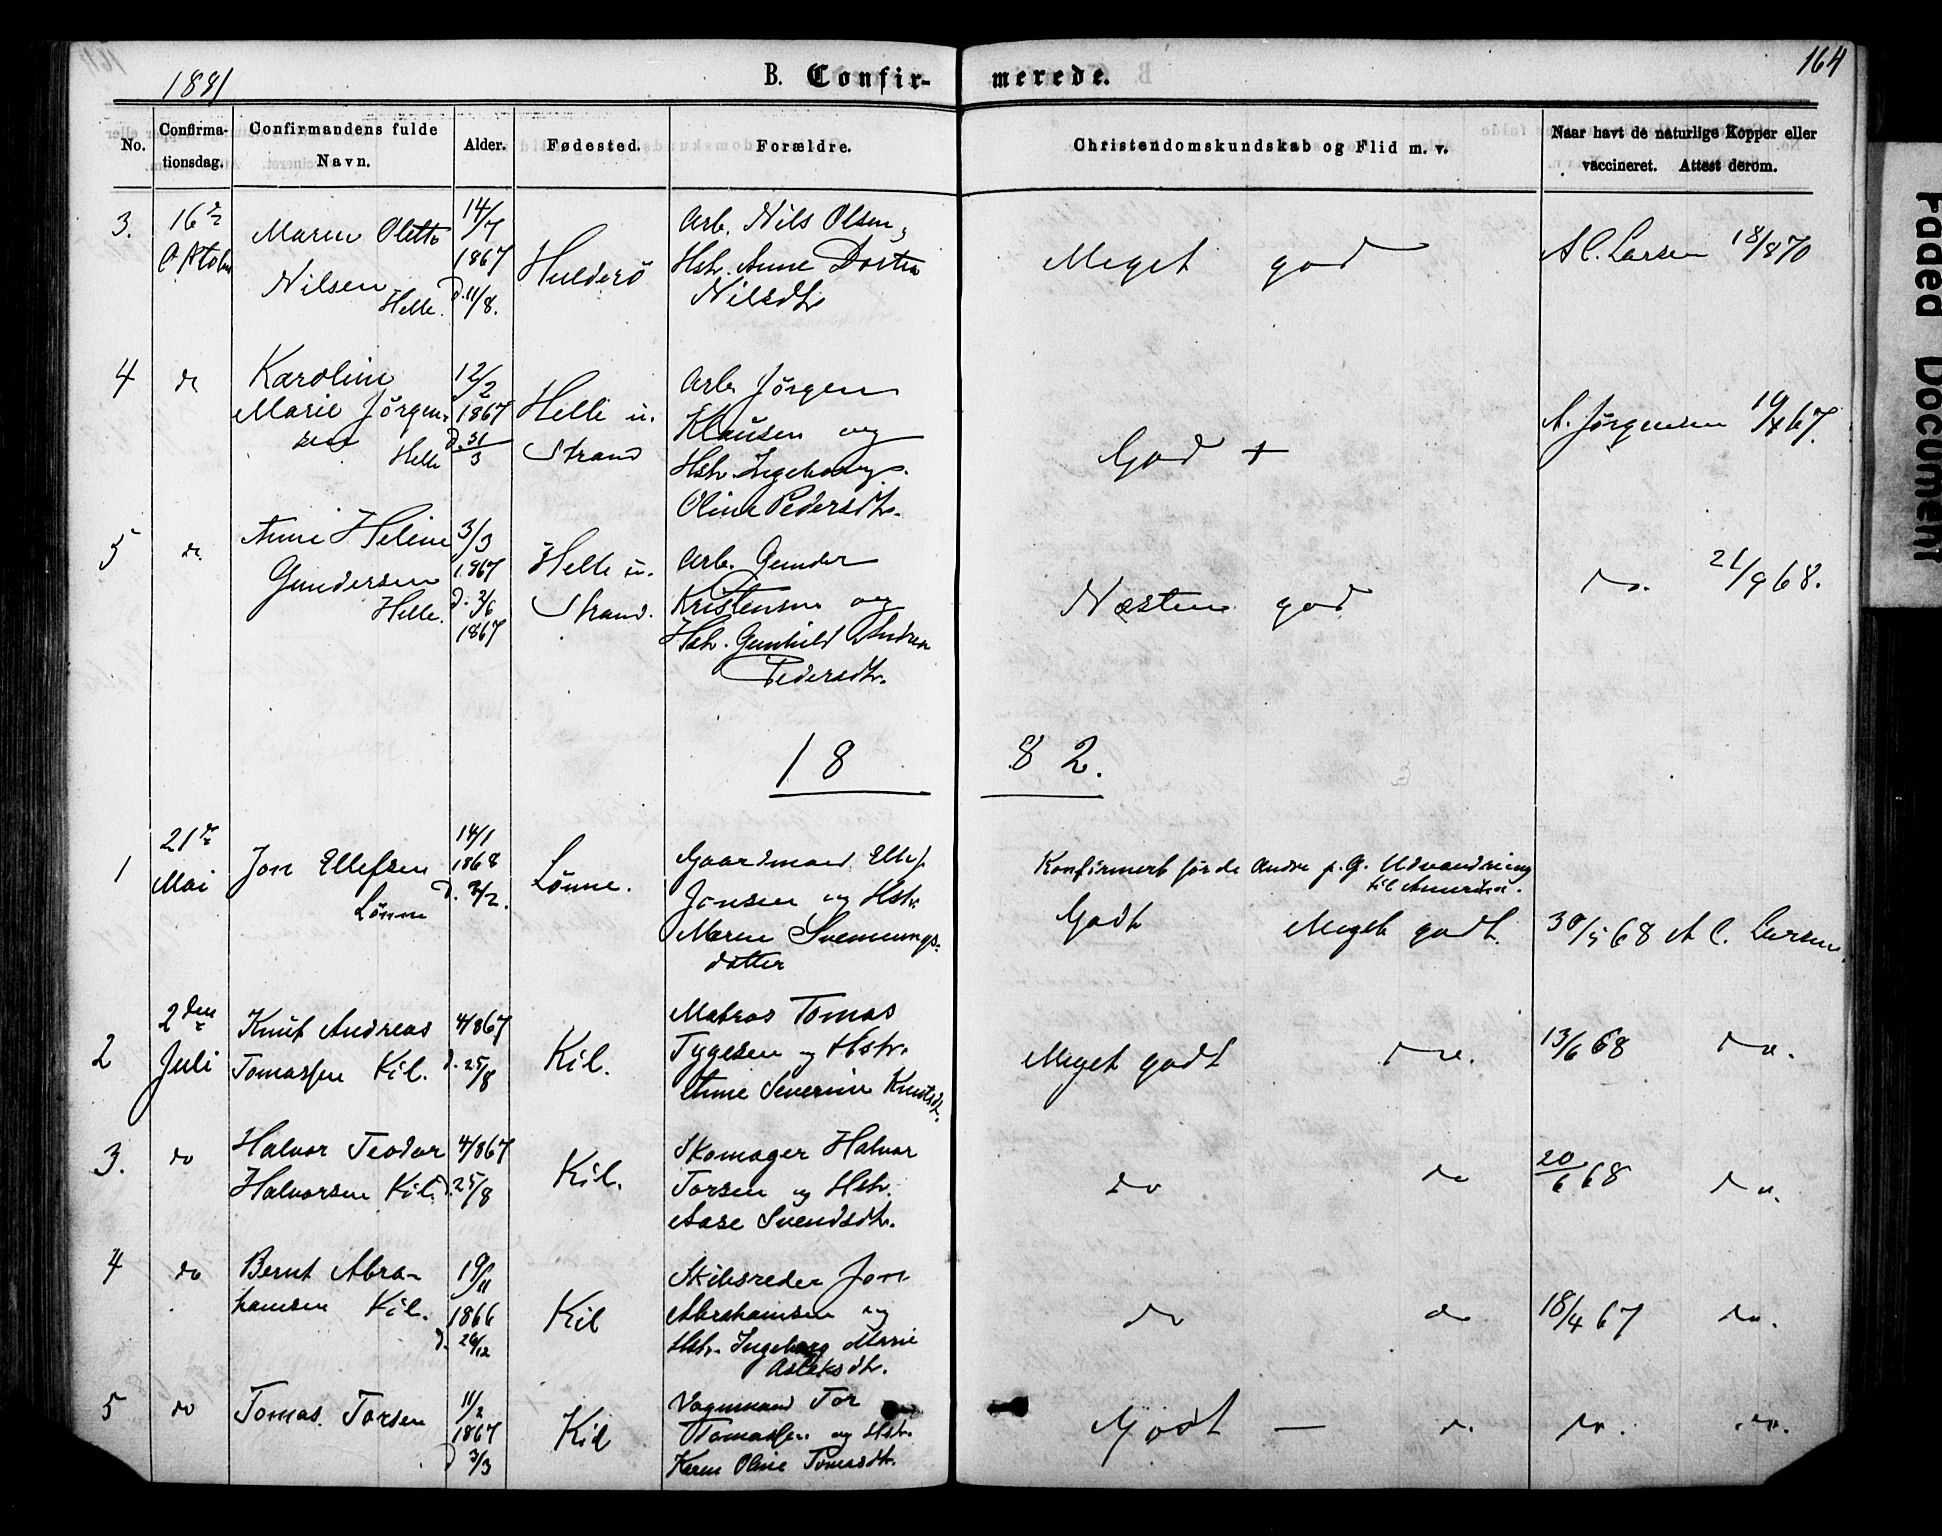 1881
B. Confir-
merede.
164
No.
Confirma-
tionsdag.
Confirmandens fulde
Navn.
Alder.
Fødested.
Forældre.
Christendomskundskab og Flid m. v.
Naar havt de naturlige Kopper eller
vaccineret. Attest derom.
3.
16de
Oktober
Maren Olette
Nilsen
Helle.
14/7
1867
d. 11/8.
Hulderö
Arb. Nils Olsen,
Hstr. Anne Dortea
Nilsdtr
Meget god
A C. Larsen 18/8 70
4
do
Karoline
Marie Jörgen-
sen
Helle
12/2
1867
d. 31/3
Helle u.
Strand
Arb. Jörgen
Klausen og
Hstr. Ingeborg
Oline Pedersdtr.
God +
A. Jörgensen 67.
5
do
Anne Heline
Gundersen
Helle.
3/3
1867
d. 2/6
1867
Helle u.
Strand.
Arb. Gunder
Kristensen og
Hstr. Gunhild Andrea
Pedersdtr.
Næsten god
do. 21/9 68.
18 82.
1
21de
Mai
Jon Ellefsen
Lönne
14/1
1868
d. 2/2.
Lönne.
Gaardmand Ellef
Jonsen og Hstr.
Maren Svennungs-
datter
Konfirmert før de Andre p. G. Udvandring
til Amerika.
Godt Meget godt.
30/5 68 A C. Larsen.
2
2den
Juli
Knut Andreas
Tomassen Kil.
4/867
d. 25/8
Kil.
Matros Tomas
Tygesen og Hstr.
Anne Severine Knutsdt.
Meget godt do.
13/6 68 do.
3.
do
Halvor Teodor
Halvorsen Kil.
4/867
d. 25/8
Kil.
Skomager Halvor
Torsen og Hstr.
Aase Svendsdtr.
do do
20/6 68 do.
4
do
Bernt Abra-
hamsen Kil.
19/11
1866
d. 26/12
Kil
Skibsreder Jon
Abrahamsen og
Hstr. Ingeborg Marie
Aslaksdtr.
do do
18/4 67 do.
5
do
Tomas Torsen
11/2
1867
d 3/3
Kil
Vognmand Tor
Tomassen og Hstr.
Karen Oline Tomasdtr.
Godt — do.
do. do.
Faded Document